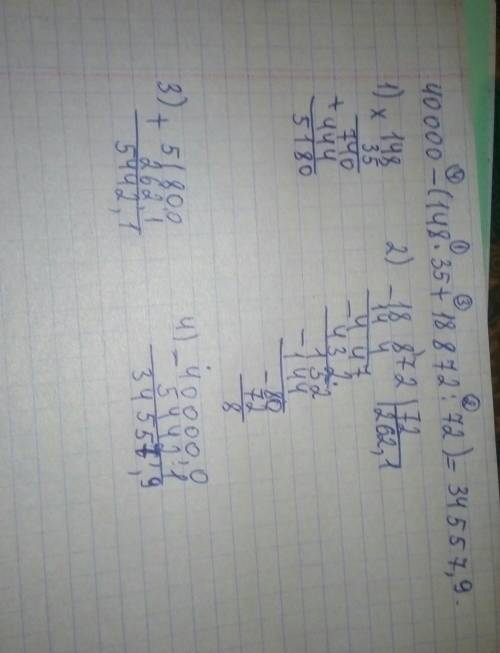 40000 - (148 · 35 + 18872 : 72) = 34557,9.
④ ① ③ ②
1) × 148
35
740
+ 444
5180
2) - 18872 | 72
144 | 262,1
- 447
432
- 152
144
- 80
72
8
3) + 5180,0
262,1
5442,1
4) - 40000,0
5442,1
34557,9